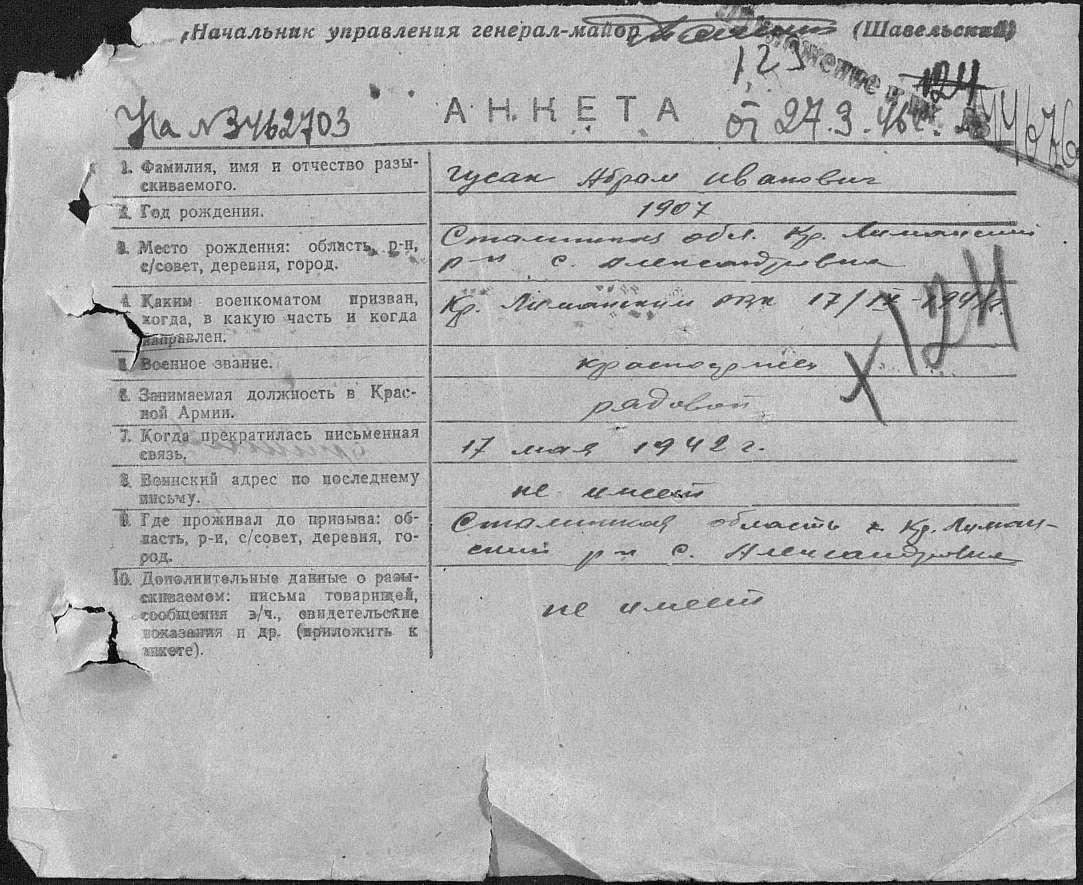 Начальник управления генерал-майор (Шавельский)
123
124
На №3462703 АНКЕТА от 27.3.46г.
1. Фамилия, имя и отчество разы-
скиваемого.
Гусак Абрам Иванович
2. Год рождения.
1907
3. Место рождения: область, р-н,
с/совет, деревня, город.
Сталинская обл. Кр. Лиманский
р-н с. Александровка
4. Каким военкоматом призван,
когда, в какую часть и когда
направлен.
Кр. Лиманским РВК 17/IX-194
124
5. Военное звание.
красноармеец
6. Занимаемая должность в Крас-
ной Армии.
рядовой
7. Когда прекратилась письменная
связь.
17 мая 1942 г.
8. Воинский адрес по последнему
письму.
не имеет
9. Где проживал до призыва: об-
ласть, р-н, с/совет, деревня, го-
род.
Сталинская область Кр. Лиман-
ский р-н с. Александровка
10. Дополнительные данные о разы-
скиваемом: письма товарищей,
сообщения в/ч., свидетельские
показания и др. (приложить к
анкете).
не имеет